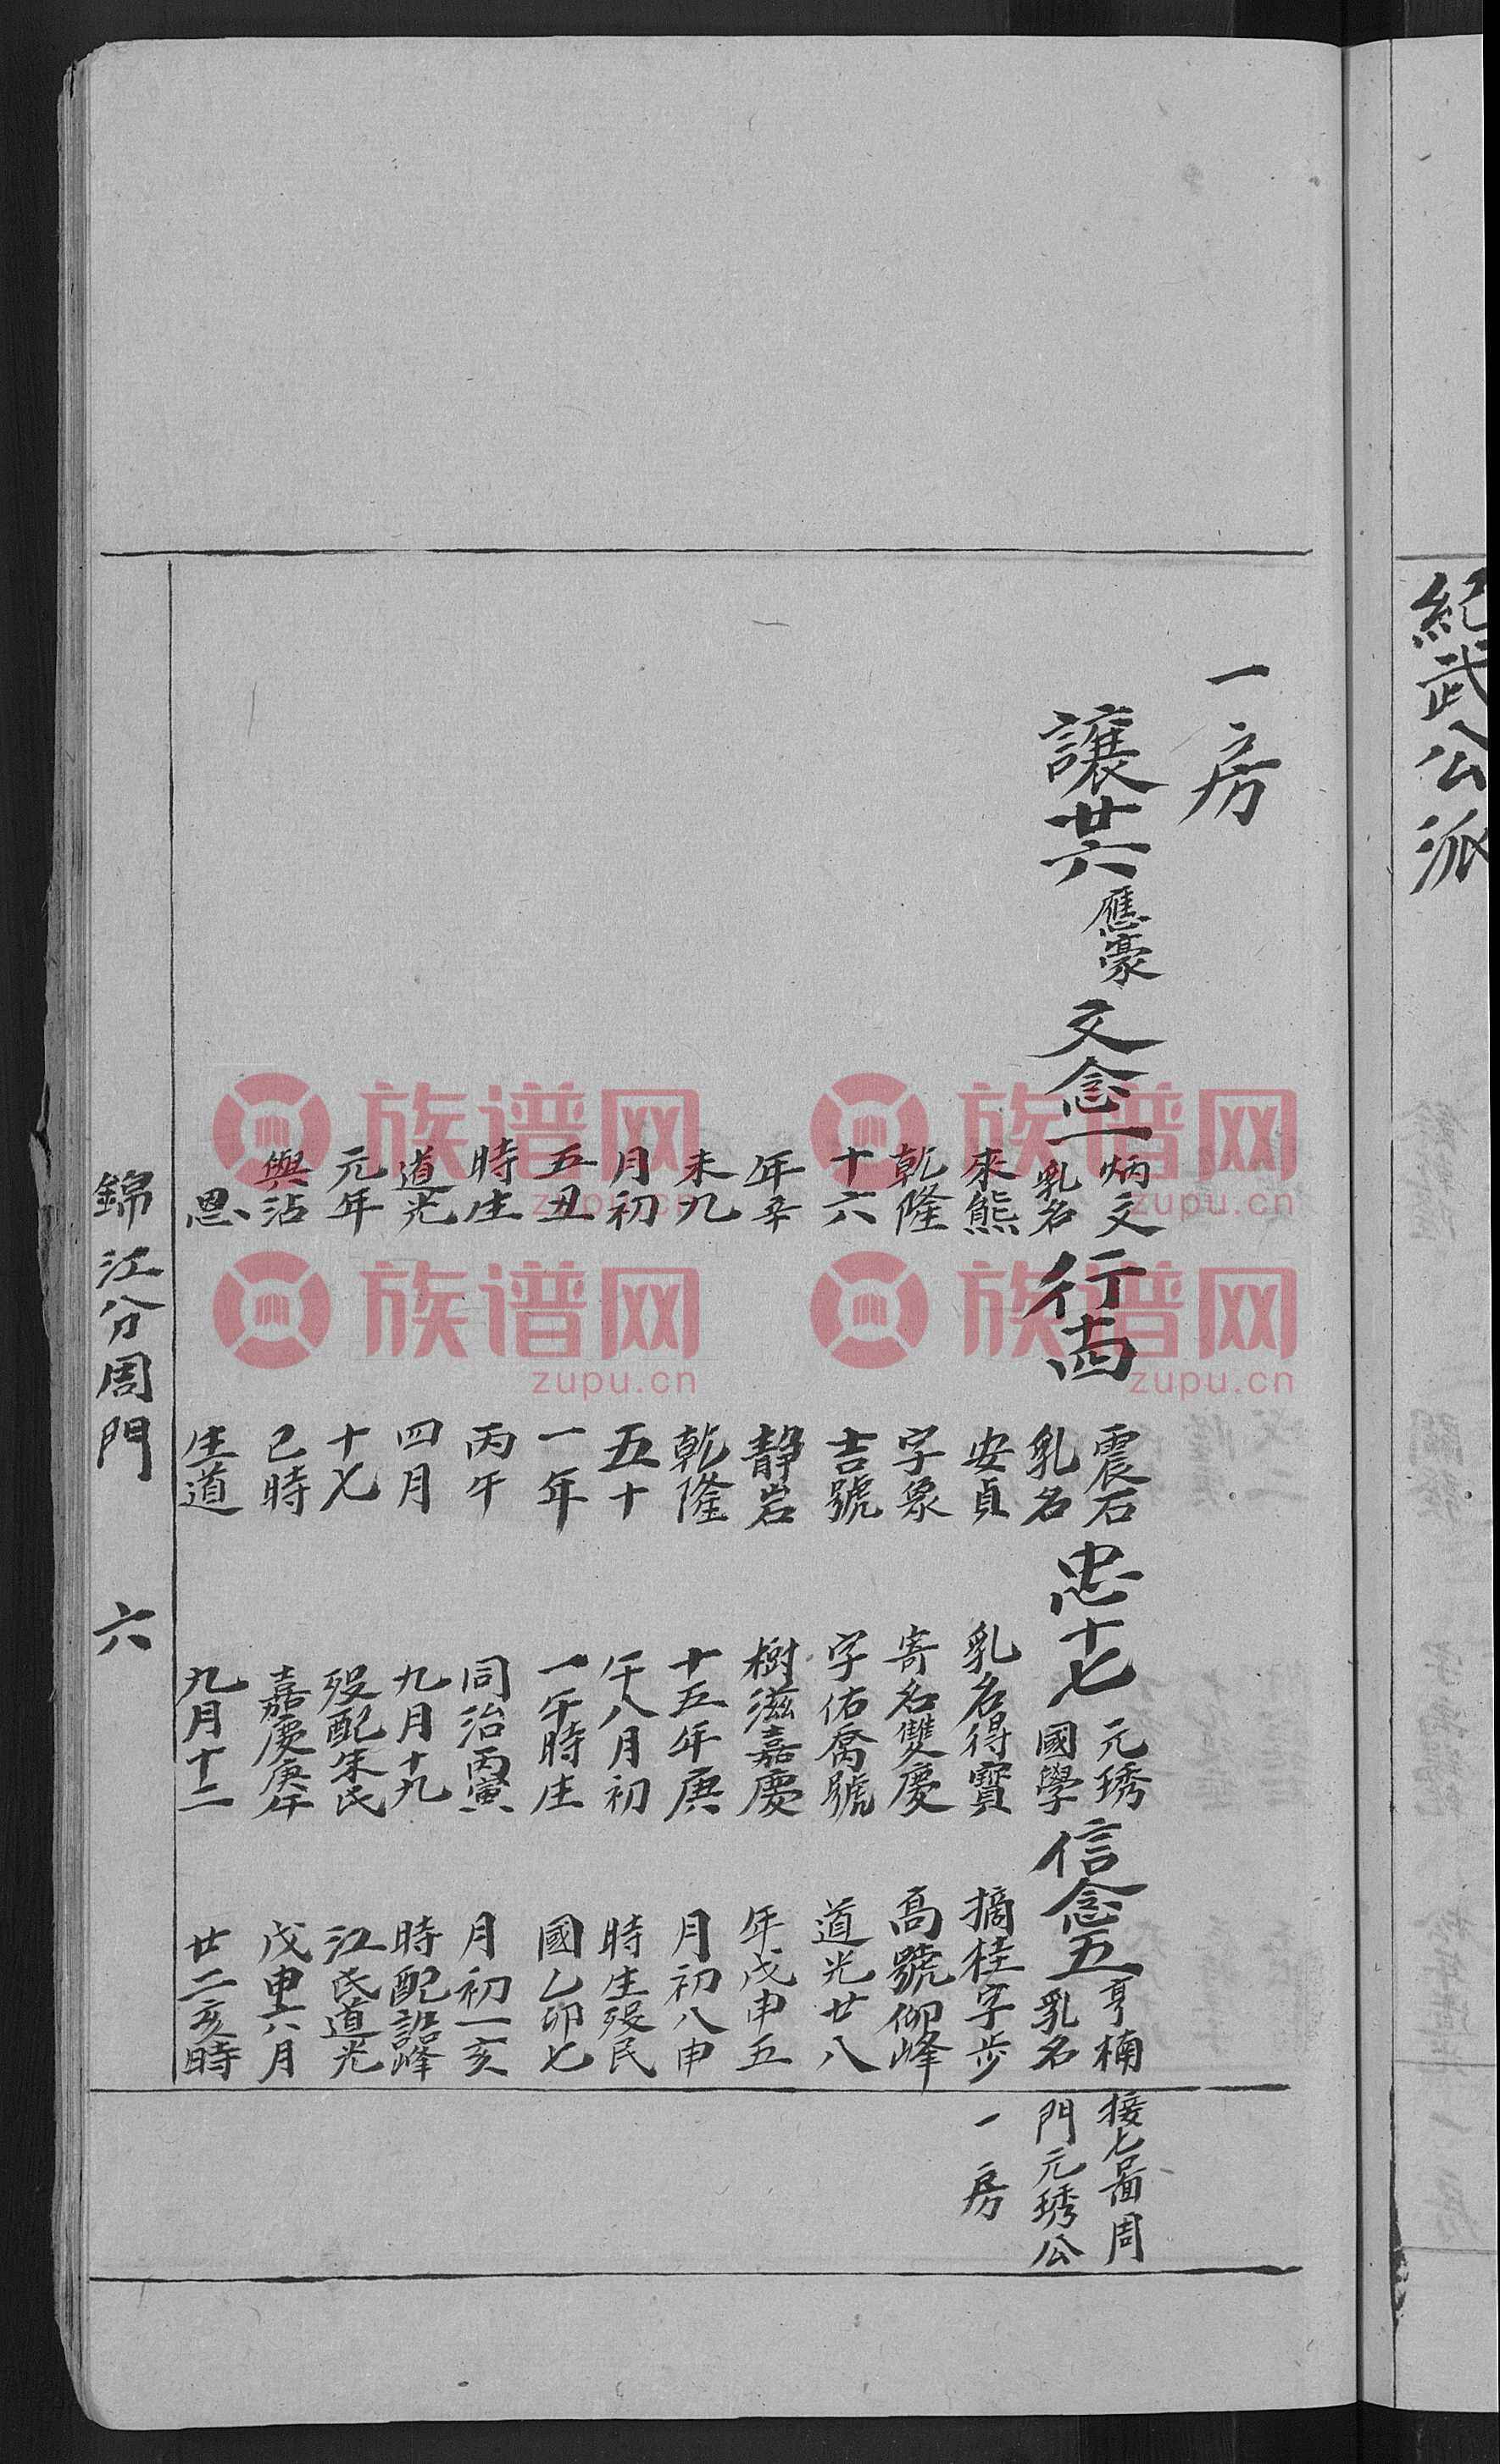 紀武公派
一房
讓廿六 應豪
文念一 炳文
乳名
來熊
乾隆
十六
年辛
未九
月初
五丑
時生
道光
元年
與沾
恩
行十四 震石
乳名
安貞
字象
吉號
靜岩
乾隆
五十
一年
丙午
四月
十七
巳時
生道
忠十七 元琇
國學
乳名得寶
寄名雙慶
字佑喬號
樹滋嘉慶
十五年庚
午八月初
一午時生
同治丙寅
九月十九
歿配朱氏
嘉慶庚午
九月十二
信念五 亨楠
乳名
摘桂字步
高號仰峰
道光廿八
年戊申五
月初八申
時生歿民
國乙卯七
月初一亥
時配詔峰
江氏道光
戊申六月
廿二亥時
接七啚周
門元琇公
一房
錦江分周門 六
族谱网 族谱网
zupu.cn zupu.cn
族谱网 族谱网
zupu.cn zupu.cn